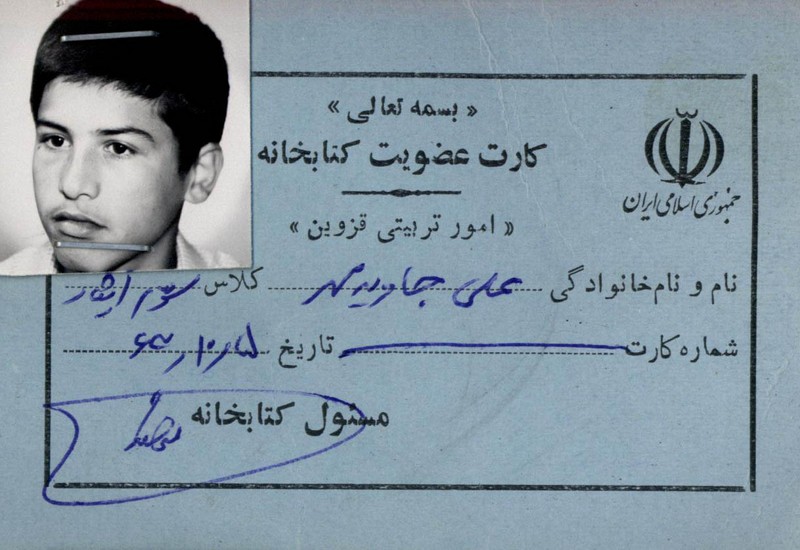 « بسمه تعالی »
کارت عضویت کتابخانه
جمهوری اسلامی ایران
« امور تربیتی قزوین »
نام و نام‌خانوادگی علی جاویدمهر کلاس سوم ایثار
شماره کارت تاریخ ۶۳/۱۰/۱۵
مسئول کتابخانه